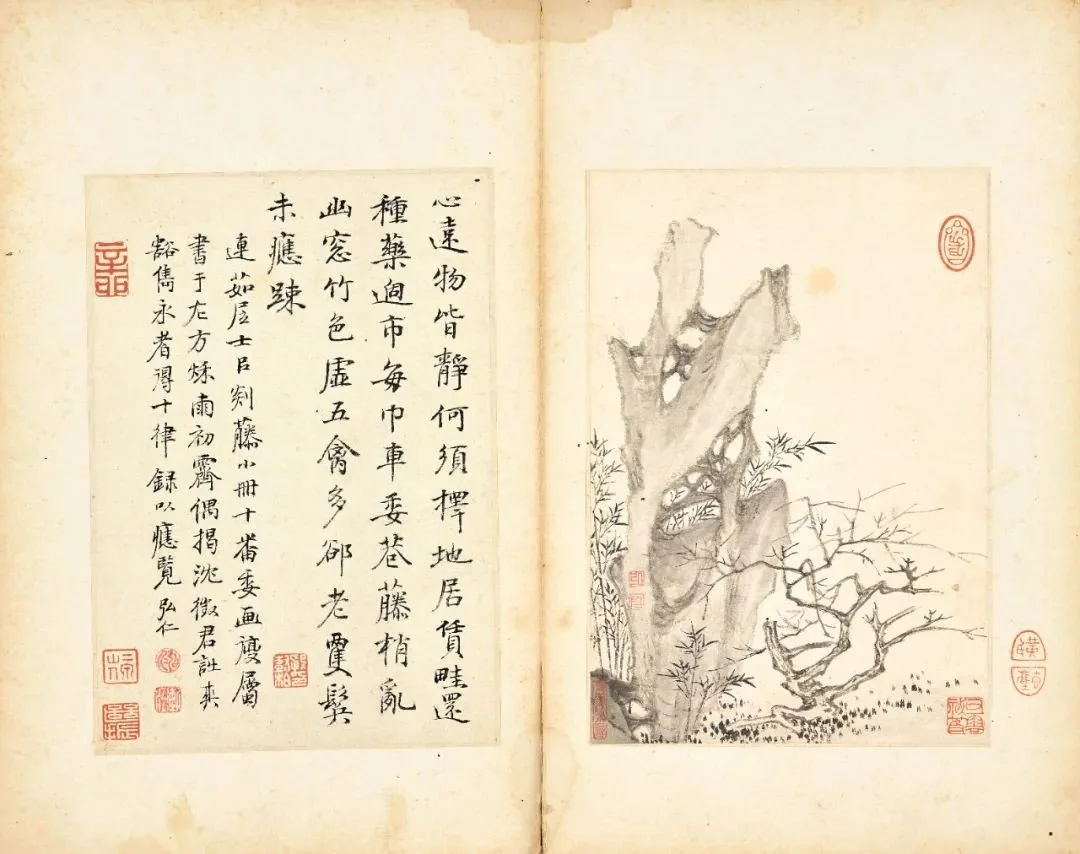 心遠物皆靜何須擇地居賃畦還
種藥過市每巾車委巷藤梢亂
幽窓竹色虛五禽多郤老玄鬓
未應踈
連茹居士㠯剡藤小冊十番委画復屬
書于左方秌雨初霽偶揭沈徴君詶爽
谿雋永者得十律録以應覧弘仁